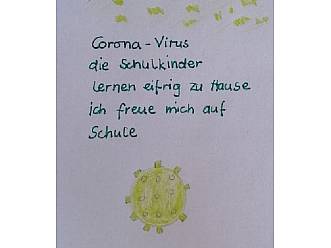 Corona-Virus
die Schulkinder
lernen eifrig zu Hause
ich freue mich auf
Schule